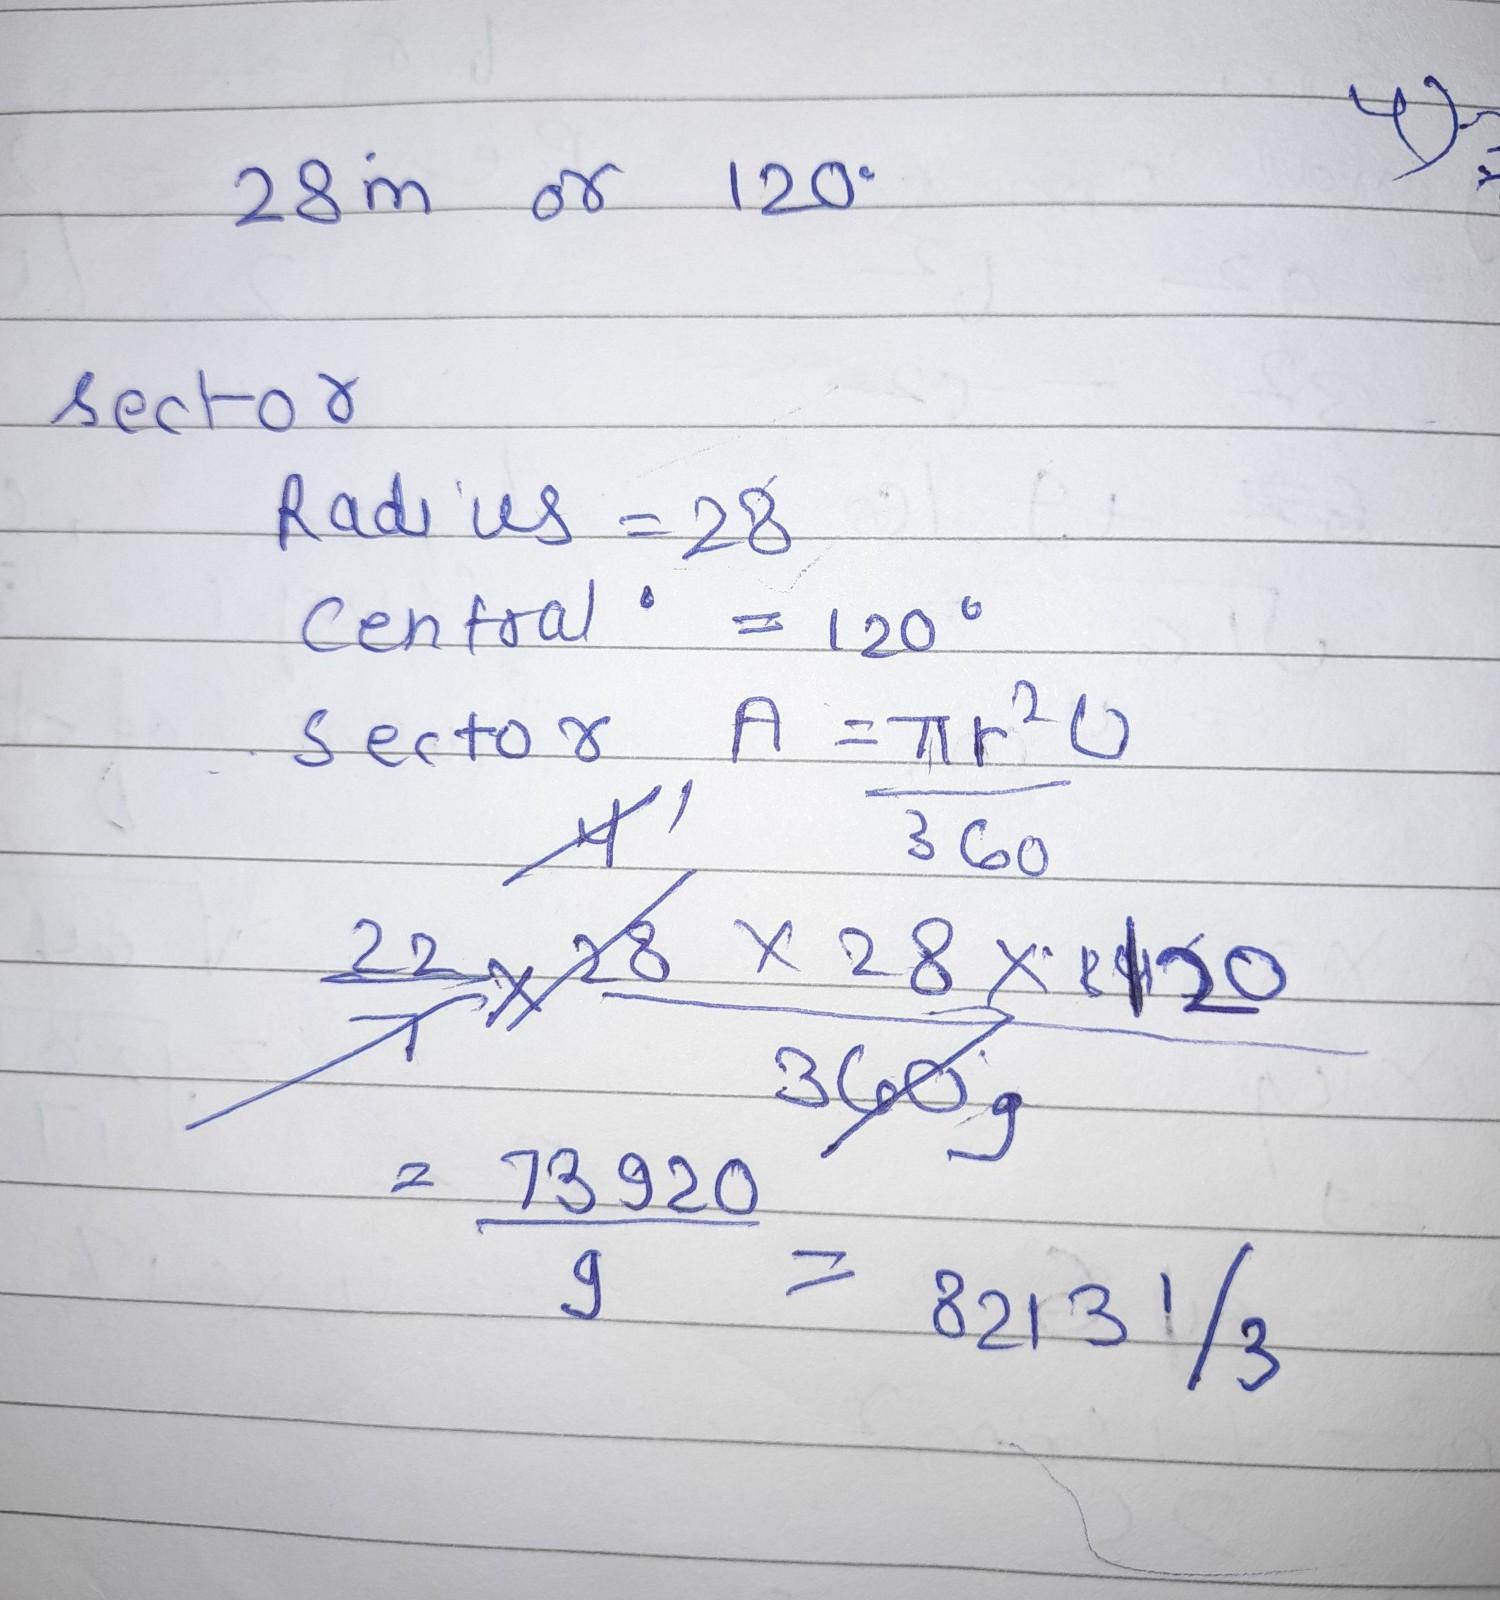 4)
28 in or 120°
sector
Radius = 28
Central ° = 120°
Sector A = πr²θ
360
4 1
22 x 28 x 28 x 120
7 360 9
= 73920
9 = 8213 1/3